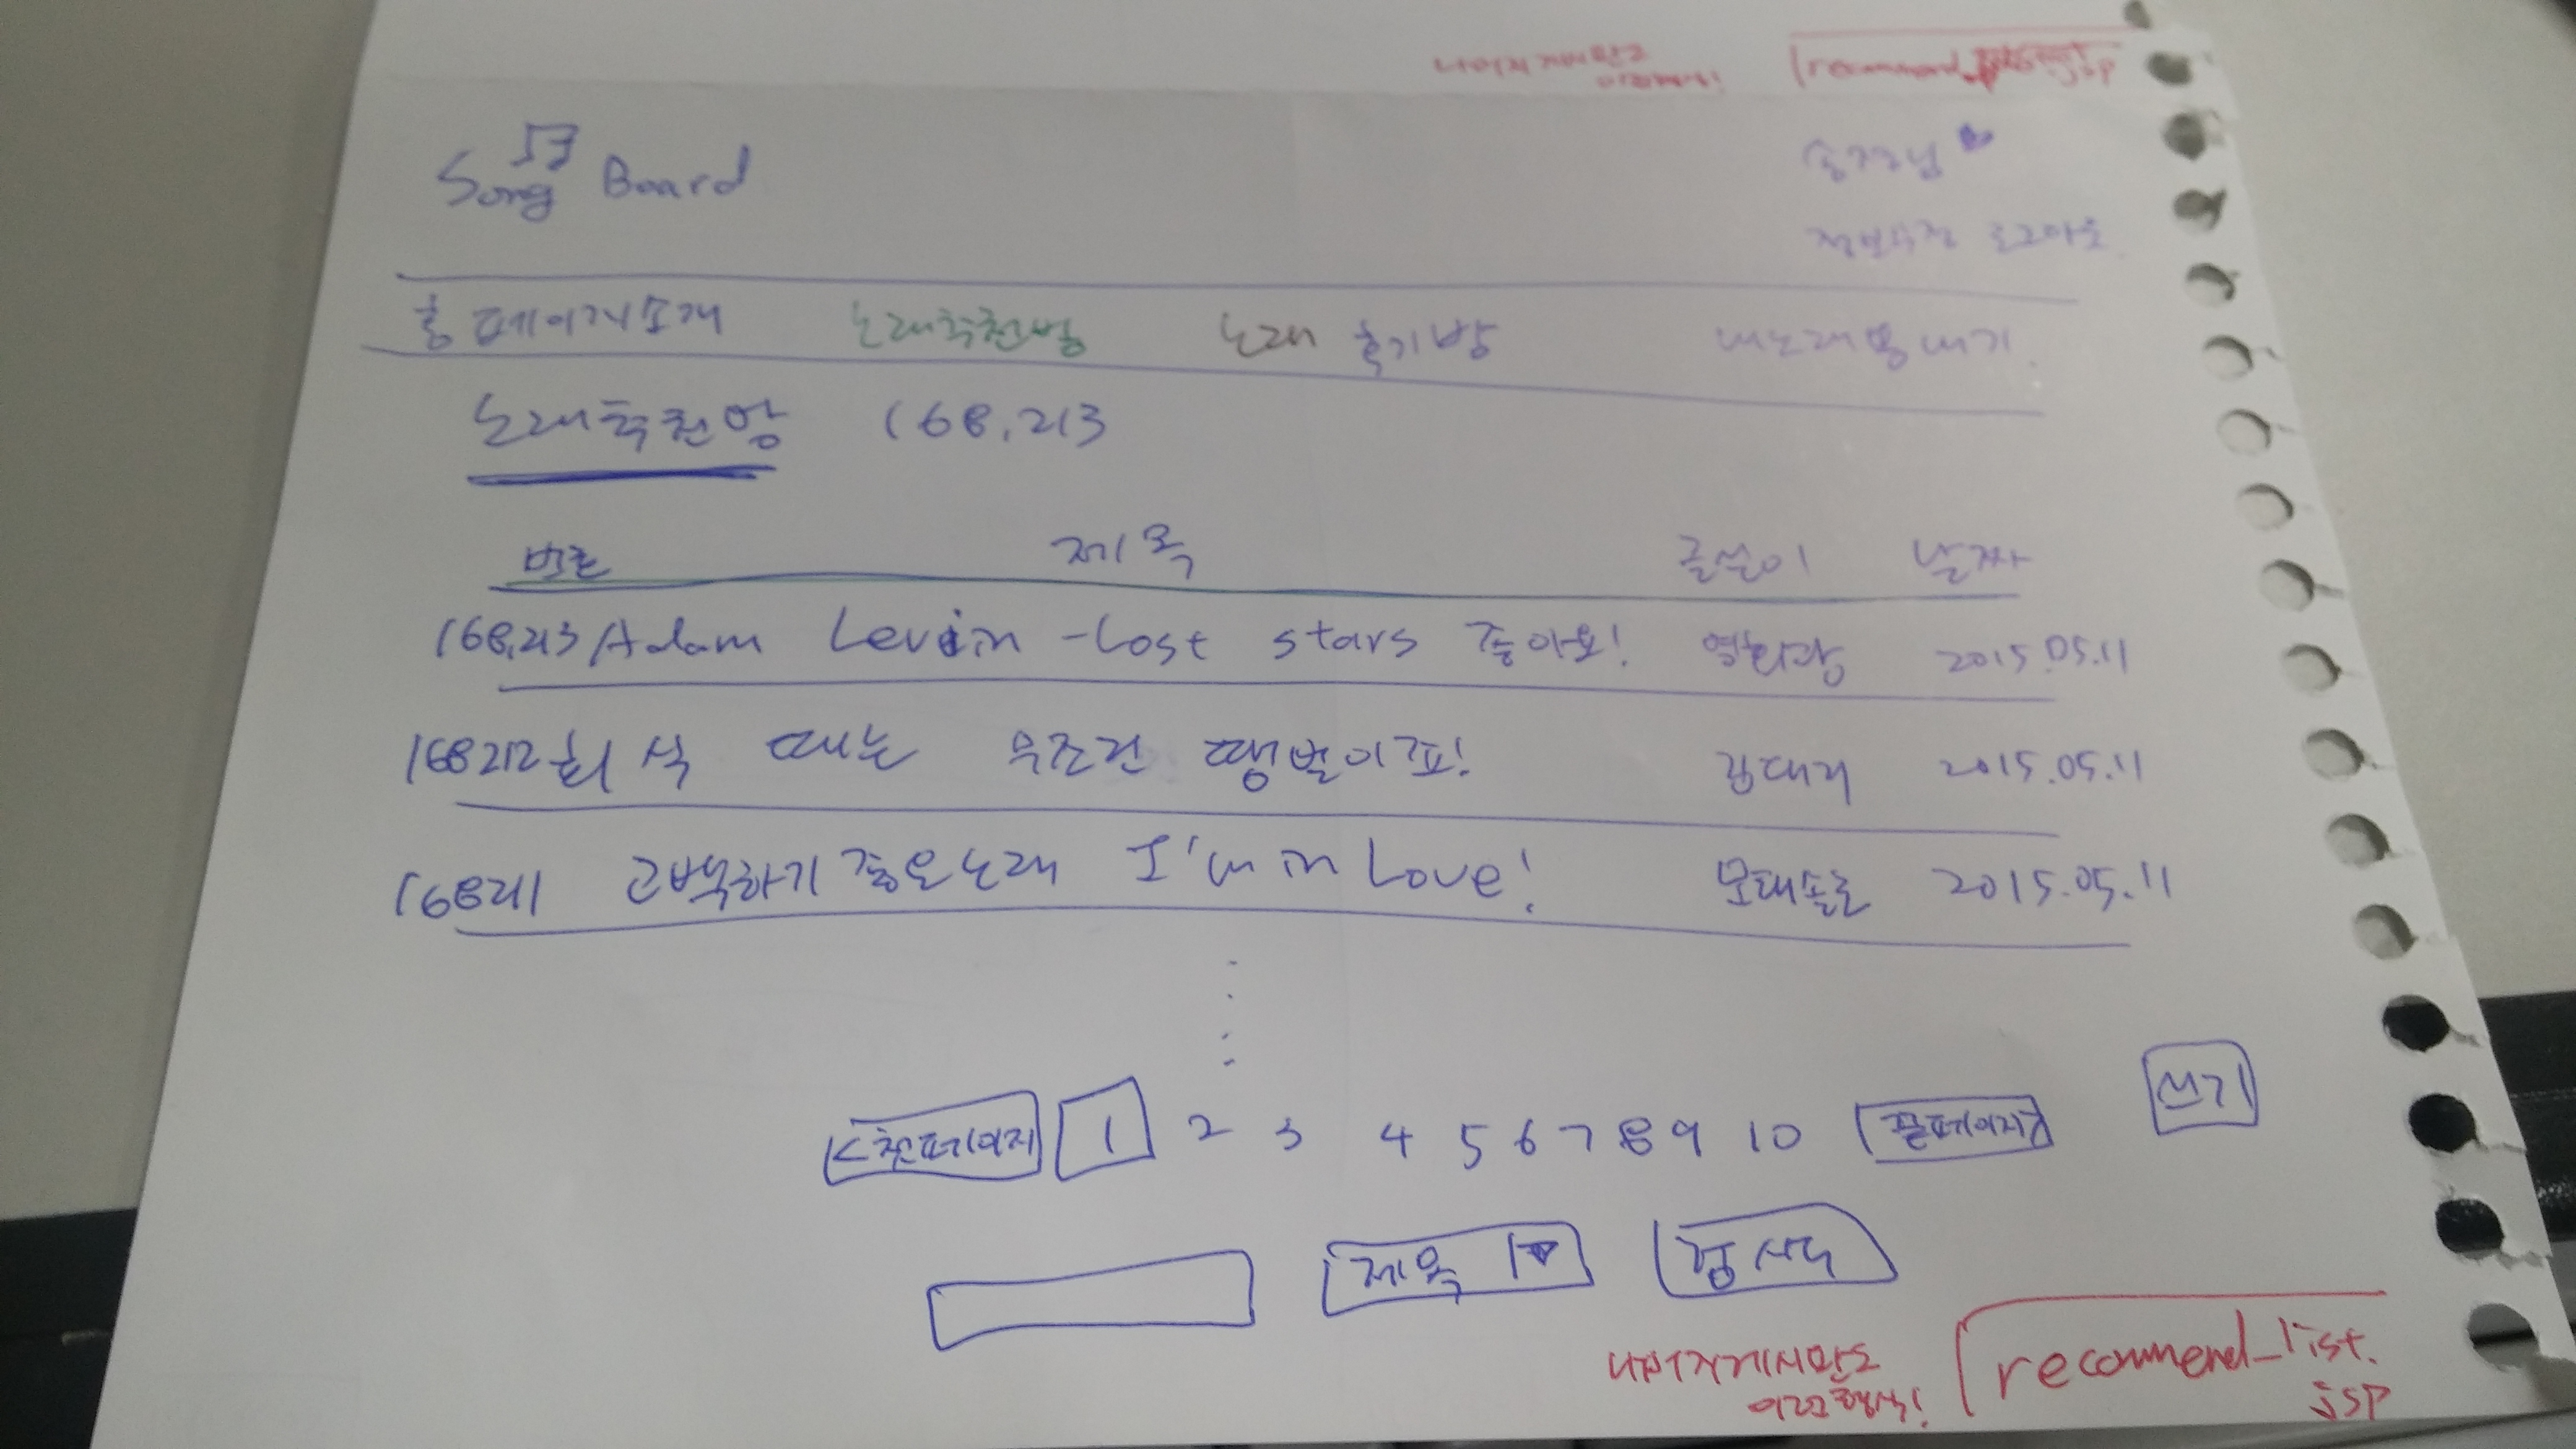 나머지게시판도
이런형식! recommend_ .jsp
Song Board
송지은님
정보수정 로그아웃
홈페이지소개 노래추천방 노래 후기방 내노래뽐내기
노래추천왕 168,213
번호 제목 글쓴이 날짜
168,213 Adam Levin - Lost stars 좋아요! 영화광 2015.05.11
168212 회식 때는 무조건 땡벌이죠! 김대리 2015.05.11
168211 고백하기 좋은노래 I'm in Love! 모태솔로 2015.05.11
<첫페이지 1 2 3 4 5 6 7 8 9 10 끝페이지> 쓰기
제목 검색
나머지게시판도
이런형식! recommend_list.
jsp